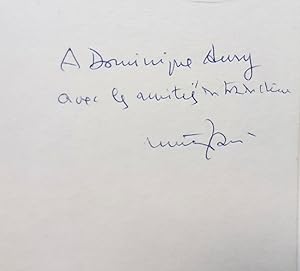 A Dominique Aury
avec les amitiés du traducteur